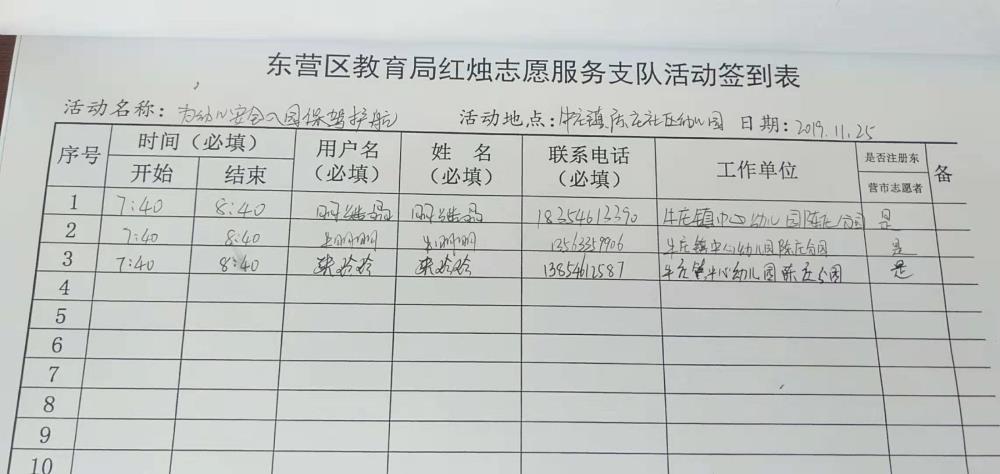 东营区教育局红烛志愿服务支队活动签到表
活动名称：为幼儿安全入园保驾护航 活动地点：牛庄镇陈庄社区幼儿园 日期：2019.11.25
序号 时间（必填） 用户名（必填） 姓 名（必填） 联系电话（必填） 工作单位 是否注册东营市志愿者 备
开始 结束
1 7:40 8:40 18354613390 牛庄镇中心幼儿园陈庄分园 是
2 7:40 8:40 13563359906 牛庄镇中心幼儿园陈庄分园 是
3 7:40 8:40 玲玲 玲玲 13854612587 牛庄镇中心幼儿园陈庄分园 是
4
5
6
7
8
9
10